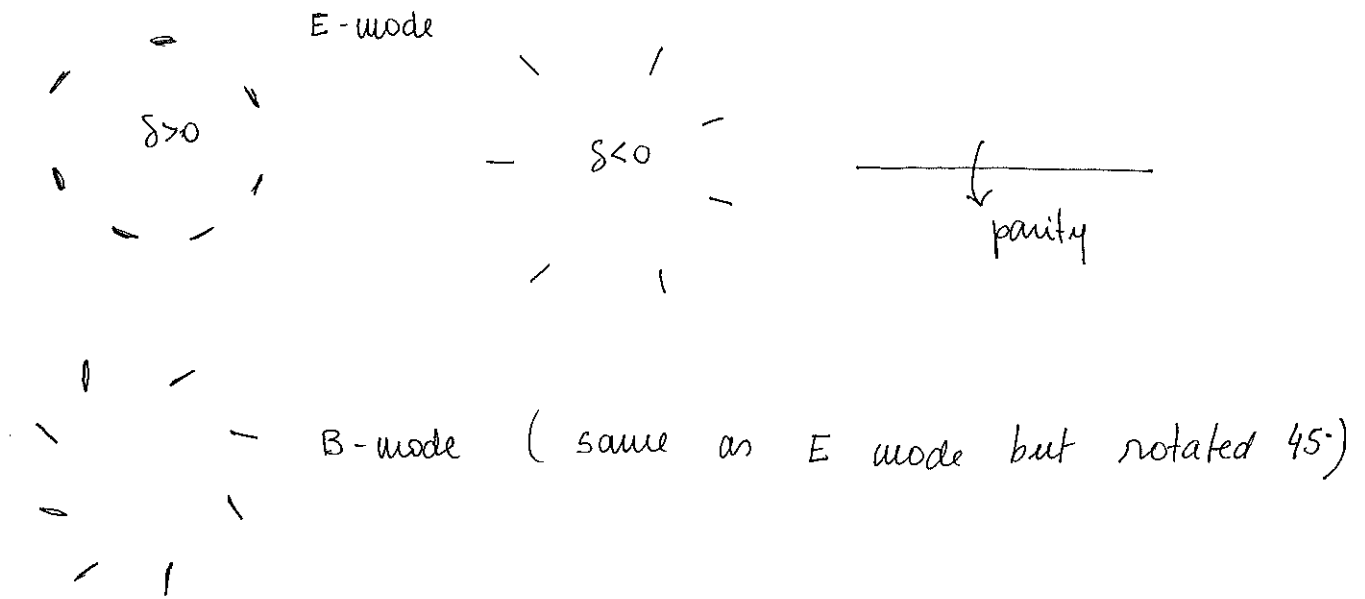 E-mode
δ>0
δ<0
parity
B-mode ( same as E mode but rotated 45°)